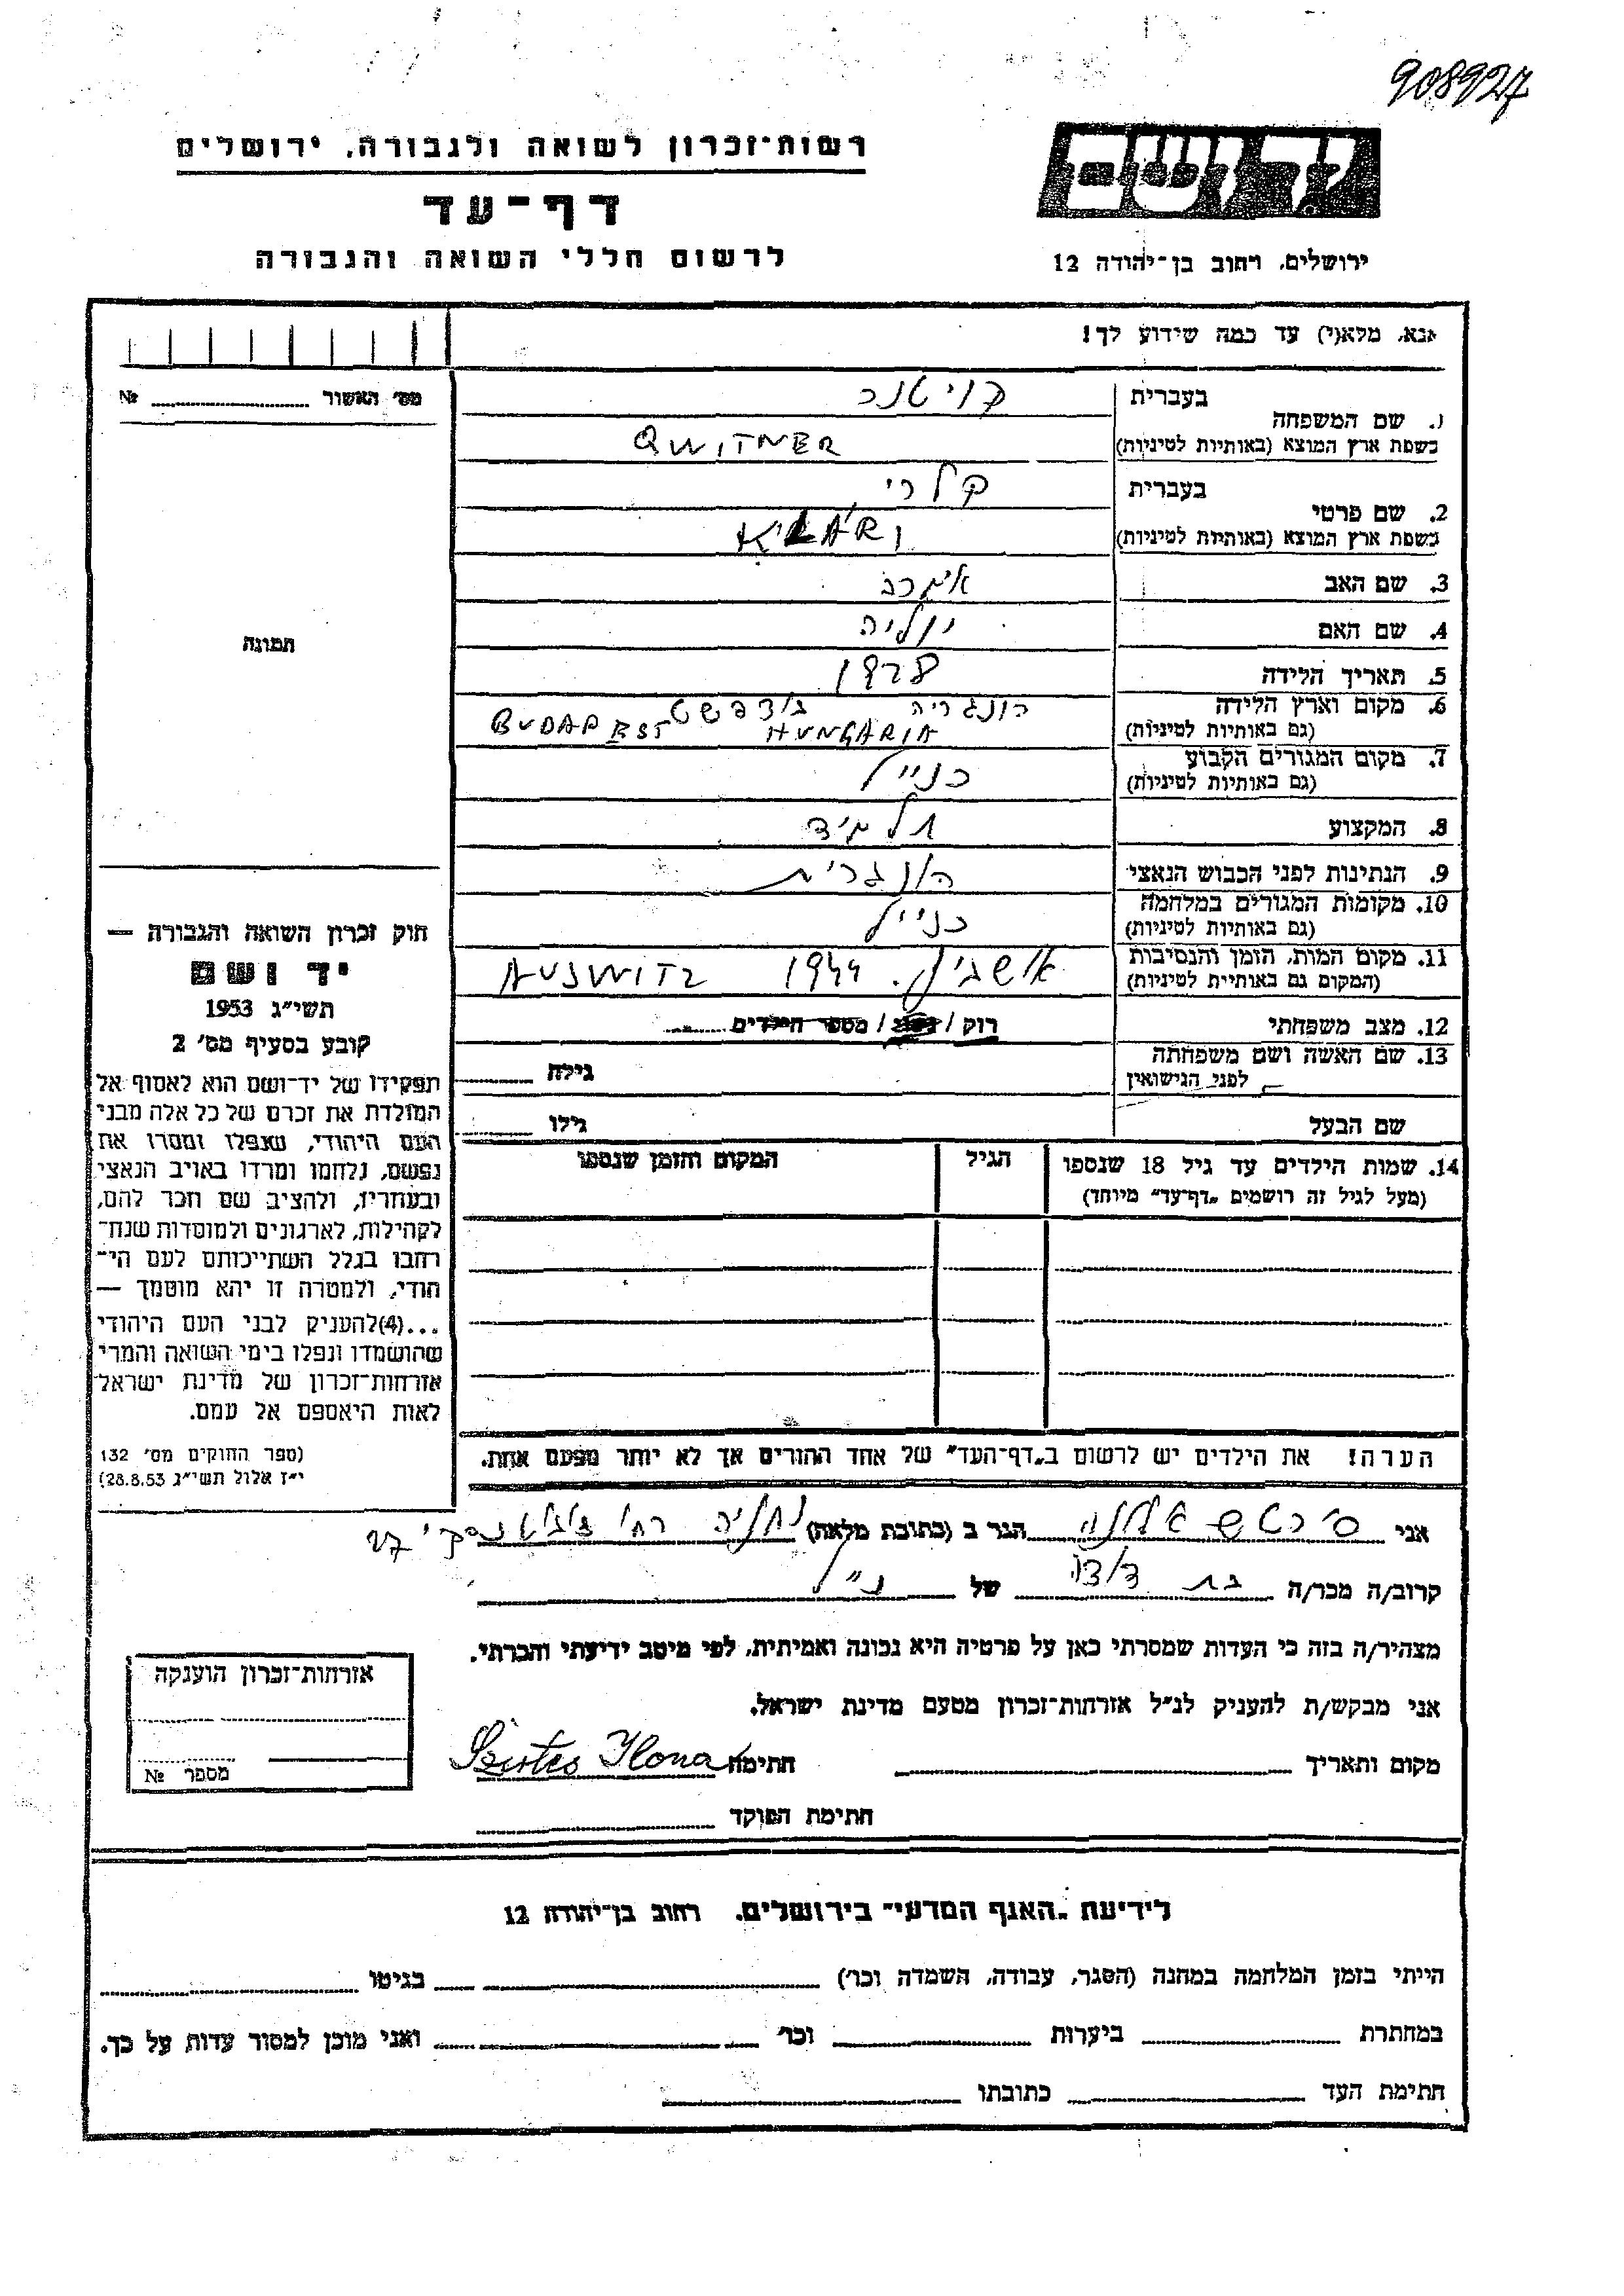 908927
רשות־זכרון לשואה ולגבורה, ירושלים
דף־עד
לרשום חללי השואה והגבורה
יד ושם
ירושלים, רחוב בן־יהודה 12
אנא, מלא(י) עד כמה שידוע לך!
מס' האשור № 
בעברית קויטנר
1. שם המשפחה
בשפת ארץ המוצא (באותיות לטיניות) QWITNER
בעברית קלרי
2. שם פרטי
בשפת ארץ המוצא (באותיות לטיניות) KLÁRI
3. שם האב אימרה
4. שם האם יוליה
5. תאריך הלידה 1928
6. מקום וארץ הלידה הונגריה בודפשט
(גם באותיות לטיניות) BUDAPEST HUNGARIA
7. מקום המגורים הקבוע כנ״ל
(גם באותיות לטיניות)
8. המקצוע תלמיד
9. הנתינות לפני הכבוש הנאצי הונגרית
10. מקומות המגורים במלחמה כנ״ל
(גם באותיות לטיניות)
11. מקום המות, הזמן והנסיבות אושביץ. 1944 AUSWITZ
(המקום גם באותיות לטיניות)
12. מצב משפחתי רוק / נשוי / מספר הילדים
13. שם האשה ושם משפחתה גילה
לפני הנישואין
שם הבעל גילו
14. שמות הילדים עד גיל 18 שנספו הגיל המקום והזמן שנספו
(מעל לגיל זה רושמים „דף־עד״ מיוחד)
הערה! את הילדים יש לרשום ב„דף־העד״ של אחד ההורים אך לא יותר מפעם אחת.
תמונה
חוק זכרון השואה והגבורה —
יד ושם
תשי״ג 1953
קובע בסעיף מס׳ 2
תפקידו של יד־ושם הוא לאסוף אל
המולדת את זכרם של כל אלה מבני
העם היהודי, שנפלו ומסרו את
נפשם, נלחמו ומרדו באויב הנאצי
ובעוזריו, ולהציב שם וזכר להם,
לקהילות, לארגונים ולמוסדות שנח־
רבו בגלל השתייכותם לעם הי־
הודי, ולמטרה זו יהא מוסמך —
...(4)להעניק לבני העם היהודי
שהושמדו ונפלו בימי השואה והמרי
אזרחות־זכרון של מדינת ישראל
לאות היאספם אל עמם.
(ספר החוקים מס׳ 132
י״ז אלול תשי״ג 28.8.53)
אני סירטש אילונה הגר ב (כתובת מלאה) נתניה רח' ז'בוטינסקי 27
קרוב/ה מכר/ה בת דודו של נ״ל
מצהיר/ה בזה כי העדות שמסרתי כאן על פרטיה היא נכונה ואמיתית, לפי מיטב ידיעתי והכרתי.
אני מבקש/ת להעניק לנ״ל אזרחות־זכרון מטעם מדינת ישראל.
מקום ותאריך חתימה Szirtes Ilona
חתימת הפוקד
אזרחות־זכרון הוענקה
מספר №
לידיעת „האגף המדעי״ בירושלים, רחוב בן־יהודה 12
הייתי בזמן המלחמה במחנה (הסגר, עבודה, השמדה וכו׳) בגיטו
במחתרת ביערות וכו׳ ואני מוכן למסור עדות על כך.
חתימת העד כתובתו